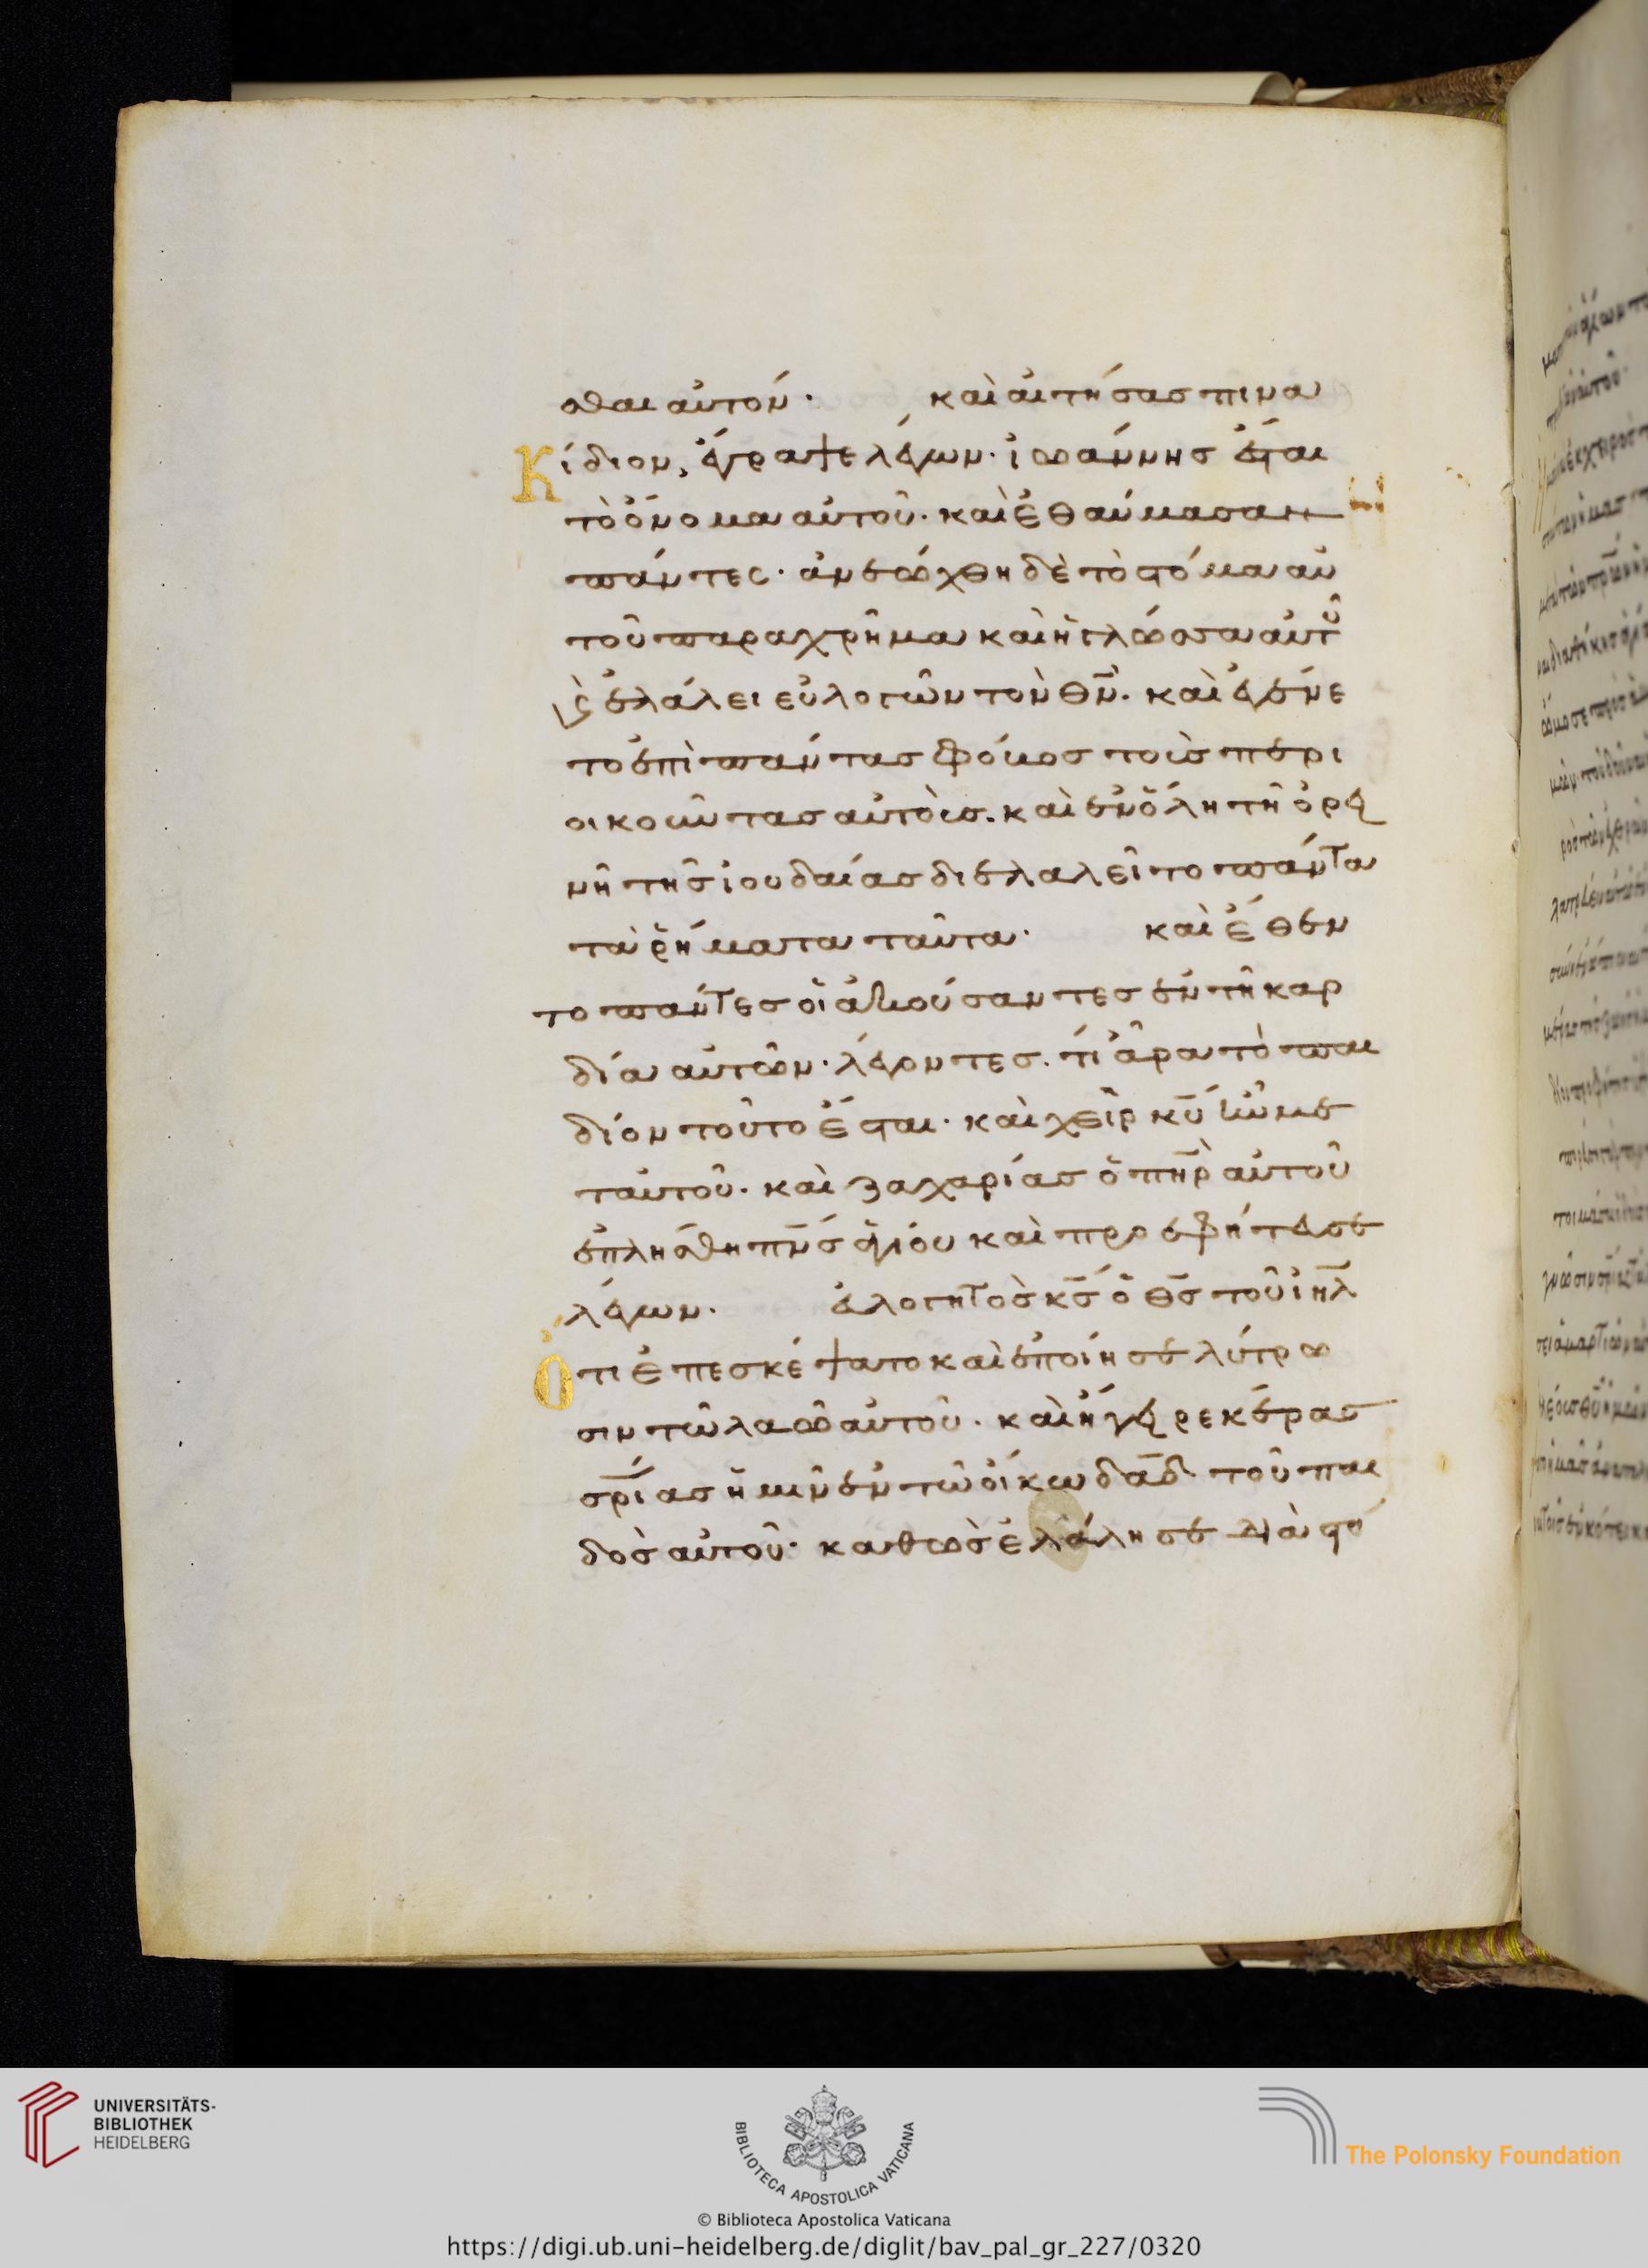 σθαι αὐτόν· καὶ αἰτήσας πινα
Κίδιον, ἔγραψε λέγων· ἰωάννης ἔσται
τὸ ὄνομα αὐτοῦ· καὶ ἐθαύμασαν
πάντες· ἀνεώχθη δὲ τὸ στόμα αὐ
τοῦ παραχρῆμα καὶ ἡ γλῶσσα αὐτοῦ
ϗ ἐλάλει εὐλογῶν τὸν θν̅· καὶ ἐγένε
το ἐπὶ πάντας φόβος τοὺς περι
οικοῦντας αὐτούς. καὶ ἐν ὅλη τῆ ὀρει
νῆ τῆς ἰουδαίας διελαλεῖτο πάντα
τὰ ῥήματα ταῦτα· καὶ ἔθεν
το πάντες οἱ ἀκούσαντες ἐν τῆ καρ
δία αὐτῶν· λέγοντες. τί ἄρα τὸ παι
δίον τοῦτο ἔσται· καὶ χεὶρ κ̅υ̅ ἦν με
τ αὐτοῦ· καὶ ζαχαρίας ὁ π̅η̅ρ̅ αὐτοῦ
ἐπλήσθη π̅ν̅ς̅ ἁγίου καὶ προεφήτευσε
λέγων· εὐλογητὸς κ̅ς̅ ὁ θ̅ς̅ τοῦ ι̅η̅λ̅
Ὅτι ἐπεσκέψατο καὶ ἐποίησε λύτρω
σιν τῶ λαῶ αὐτοῦ· καὶ ἤγειρε κέρας
σ̅ρ̅ίας ἡμῖν ἐν τῶ οἴκω δ̅α̅δ̅ τοῦ παι
δὸς αὐτοῦ· καθὼς ἐλάλησε διὰ στό
UNIVERSITÄTS-
BIBLIOTHEK
HEIDELBERG
BIBLIOTECA APOSTOLICA VATICANA
The Polonsky Foundation
© Biblioteca Apostolica Vaticana
https://digi.ub.uni-heidelberg.de/diglit/bav_pal_gr_227/0320